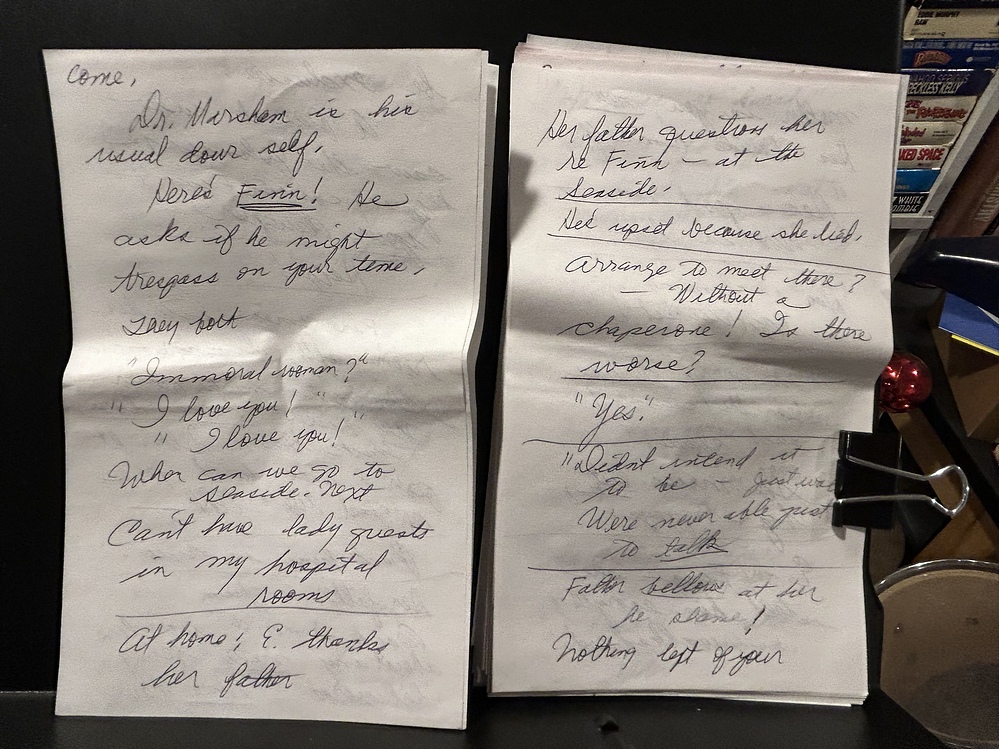 come,
Dr. Mirsham is his
usual dour self.
Here's Finn! He
asks if he might
trespass on your time,
They both
"Immoral woman?"
" I love you! "
" I love you!
When can we go to
seaside. next
Can't have lady guests
in my hospital
rooms
At home; E. thanks
her father
Her father questions her
re Finn — at the
Seaside.
He's upset because she lied.
Arrange to meet there?
— Without a
chaperone! Is there
worse?
"Yes".
"Didn't intend it
to be — just was
Were never able just
to talk
Father bellows at her
he shame!
Nothing left of your
EDDIE MURPHY
RAW
YAHOO SERIOUS
RECKLESS KELLY
NAKED SPACE
WHITE
ZOMBIE